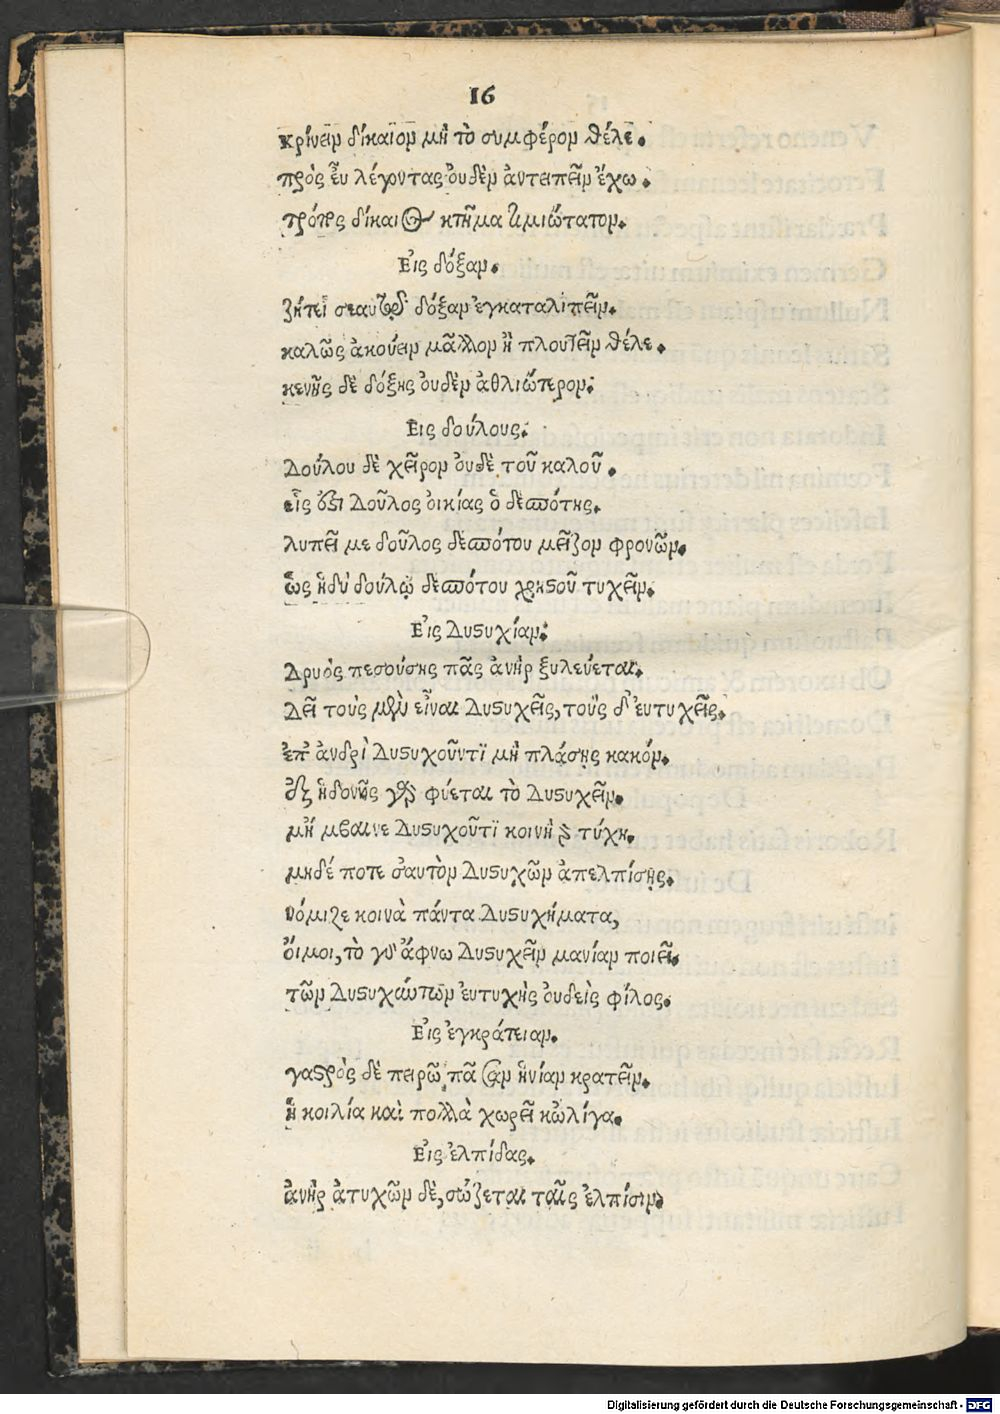 16
κρίνειν δίκαιον μὴ τὸ συμφέρον θέλε.
πρὸς εὖ λέγοντας οὐδὲν ἀντειπεῖν ἔχω.
τρόπος δίκαιος κτῆμα τιμιώτατον.
Εἰς δόξαν.
ζήτει σεαυτῷ δόξαν ἐγκαταλιπεῖν.
καλῶς ἀκούειν μᾶλλον ἢ πλουτεῖν θέλε.
κενῆς δὲ δόξης οὐδὲν ἀθλιώτερον.
Εἰς δούλους.
Δούλου δὲ χεῖρον οὐδὲ τοῦ καλοῦ.
εἷς ἐστι Δοῦλος οἰκίας ὁ δεσπότης.
λυπεῖ με δοῦλος δεσπότου μεῖζον φρονῶν.
ὡς ἡδὺ δούλῳ δεσπότου χρηστοῦ τυχεῖν.
Εἰς Δυστυχίαν.
Δρυὸς πεσούσης πᾶς ἀνὴρ ξυλεύεται.
Δεῖ τοὺς μὲν εἶναι Δυστυχεῖς, τοὺς δ' εὐτυχεῖς.
ἐπ' ἀνδρὶ Δυστυχοῦντι μὴ πλάσῃς κακόν.
ἐξ ἡδονῆς γὰρ φύεται τὸ Δυστυχεῖν.
μὴ μβαινε Δυστυχοῦτι κοινὴ γὰρ τύχη.
μηδέ ποτε σαυτὸν Δυστυχῶν ἀπελπίσῃς.
νόμιζε κοινὰ πάντα Δυστυχήματα,
οἴμοι, τὸ γὰρ ἄφνω Δυστυχεῖν μανίαν ποιεῖ.
τῶν Δυστυχούντων εὐτυχὴς οὐδεὶς φίλος.
Εἰς ἐγκράτειαν.
γαστρὸς δὲ πειρῶ πᾶσαν ἡνίαν κρατεῖν.
ἡ κοιλία καὶ πολλὰ χωρεῖ κὠλίγα.
Εἰς ἐλπίδας.
ἀνὴρ ἀτυχῶν δὲ, σώζεται ταῖς ἐλπίσιν.
Digitalisierung gefördert durch die Deutsche Forschungsgemeinschaft - DFG